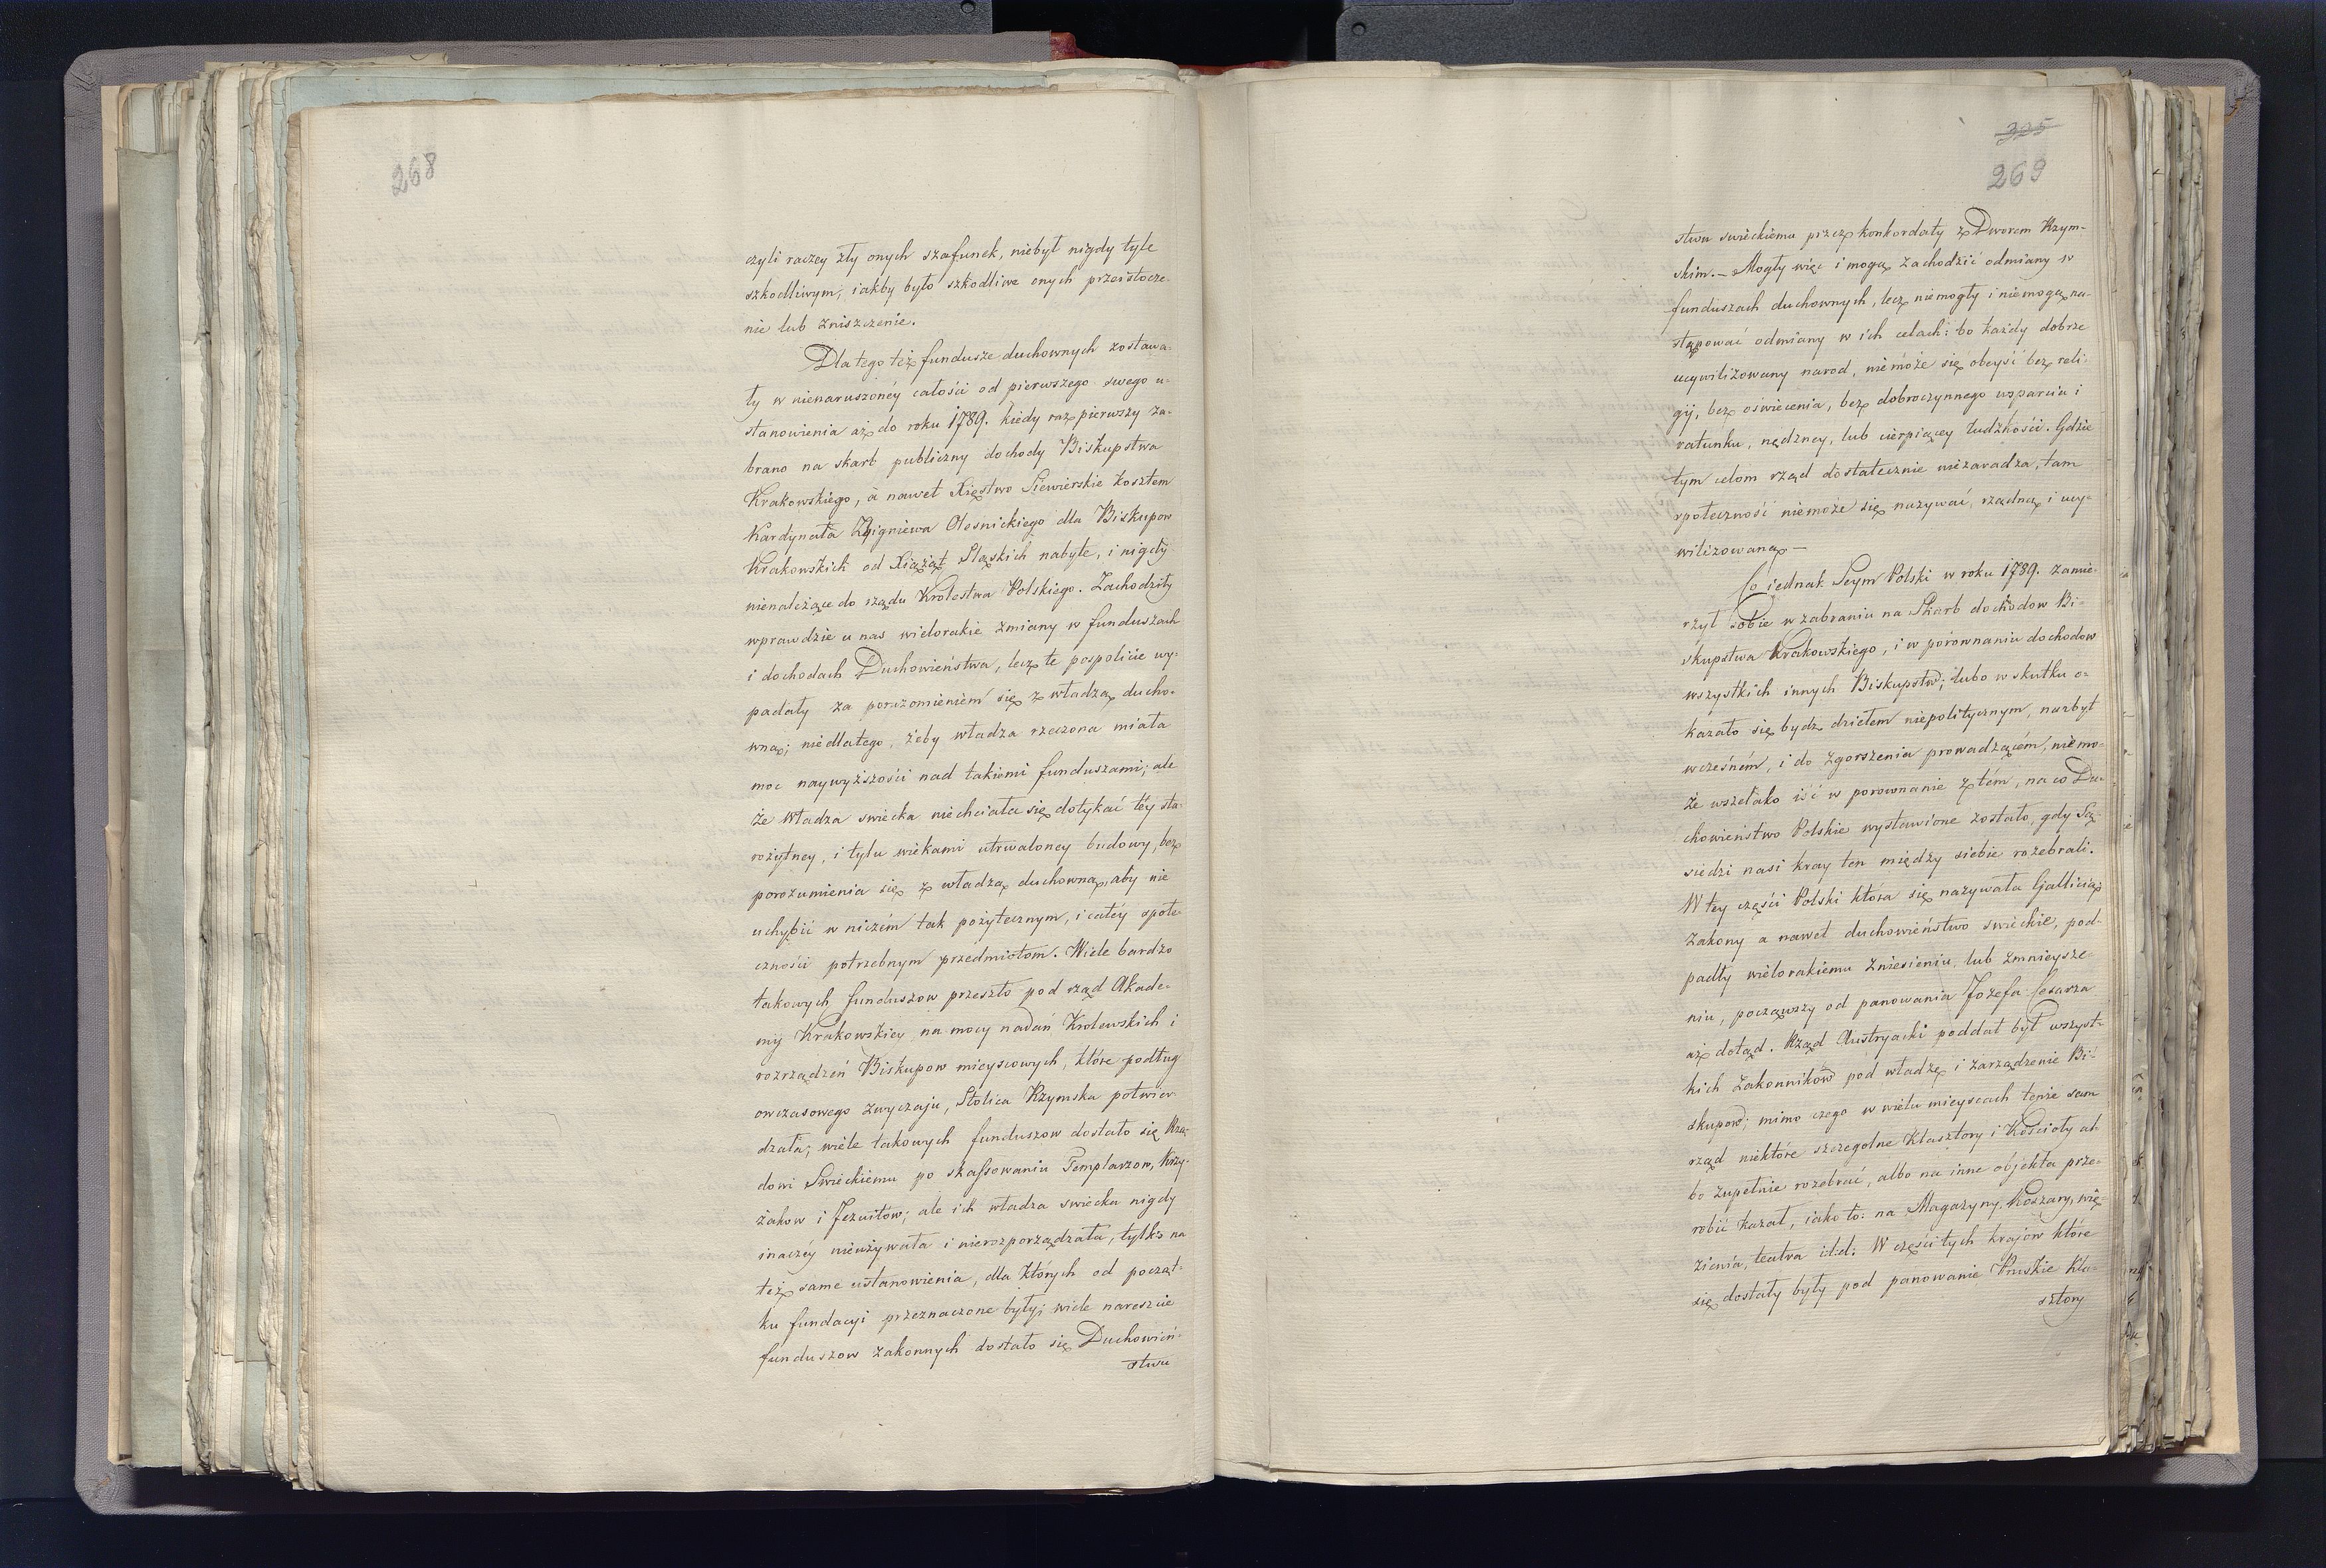 268
czyli raczey zły onych szafunek, niebył nigdy tyle
szkodliwym, iakby było szkodliwe onych przeistocze-
nie lub zniszczenie.
Dlatego też fundusze duchownych zostawa-
ły w nienaruszonéy całości od pierwszego swego u-
stanowienia aż do roku 1789. kiedy raz pierwszy za-
brano na skarb publiczny dochody Biskupstwa
Krakowskiego, a nawet Xięstwo Siewierskie kosztem
Kardynała Zbigniewa Olesnickiego dla Biskupow
Krakowskich od Xiążąt Sląskich nabyte, i nigdy
nienależące do rządu Krolestwa Polskiego. Zachodziły
wprawdzie u nas wielorakie zmiany w funduszach
i dochodach Duchowieństwa, lecz te pospolicie wy-
padały za porozomieniem się z władzą ducho-
wną; niedlatego, żeby władza rzeczona miała
moc naywyższości nad takiemi funduszami; ale
że władza swiecka niechciała się dotykać téy sta-
rożytney, i tylu wiekami utrwaloney budowy, bez
porozumienia się z władzą duchowną, aby nie
uchybić w niczém tak pożytecznym, i całéy społe-
czności potrzebnym przedmiotom. Wiele bardzo
takowych funduszow przeszło pod rząd Akade-
mij Krakowskiey na mocy nadań Krolewskich i
rozrządzeń Biskupow mieyscowych, które podług
owczasowego zwyczaju, Stolica Rzymska potwier-
dzała; wiele takowych funduszow dostało się Rzą-
dowi Swieckiemu po skassowaniu Templarzow, Krzy-
żakow i Jezuitów; ale ich władza swiecka nigdy
inaczéy nieużywała i nierozporządzała, tylko na
też same ustanowienia, dla których od począt-
ku fundacyi przeznaczone były; wiele nareszcie
funduszow zakonnych dostało się Duchowień-
stwu
325
269
stwu swieckiemu przez konkordaty z Dworem Rzym-
skim. — Mogły więc i mogą zachodzić odmiany w
funduszach duchownych, lecz niemogły i niemogą na-
stąpować odmiany w ich celach: bo każdy dobrze
ucywilizowany narod, niemoże się obeyść bez reli-
gij, bez oświecenia, bez dobroczynnego wsparcia i
ratunku, nędzney, lub cierpiącey ludzkości. Gdzie
tym celom rząd dostatecznie niezaradza, tam
społeczność niemoże się nazywać, rządną i ucy-
wilizowaną —
Co iednak Seym Polski w roku 1789. zamie-
rzył sobie w zabraniu na Skarb dochodow Bi-
skupstwa Krakowskiego, i w porównaniu dochodow
wszystkich innych Biskupstw; lubo w skutku o-
kazało się bydz dziełem niepolitycznym, nazbyt
wczesném, i do zgorszenia prowadzącém, niemo-
że wszelako iść w porownanie z tém, na co Du-
chowieństwo Polskie wystawione zostało, gdy Są-
siedzi nasi kray ten między siebie rozebrali.
W tey części Polski ktora się nazywała Gallicią;
Zakony a nawet duchowieństwo swieckie, pod-
padły wielorakiemu zniesieniu, lub zmnieysze-
niu, począwszy od panowania Jozefa Cesarza
aż dotąd. Rząd Austryacki poddał był wszyst-
kich Zakonników pod władzę i zarządzenie Bi-
skupow; mimo czego w wielu mieyscach tenże sam
rząd niektóre szczegolne Klasztory i Kościoły al-
bo zupełnie rozebrać, albo na inne objekta prze-
robić kazał, iako to: na Magazyny, Koszary, wię-
zienia, teatra i t.d: W części tych krajow które
się dostały były pod panowanie Pruskie Kla-
sztory